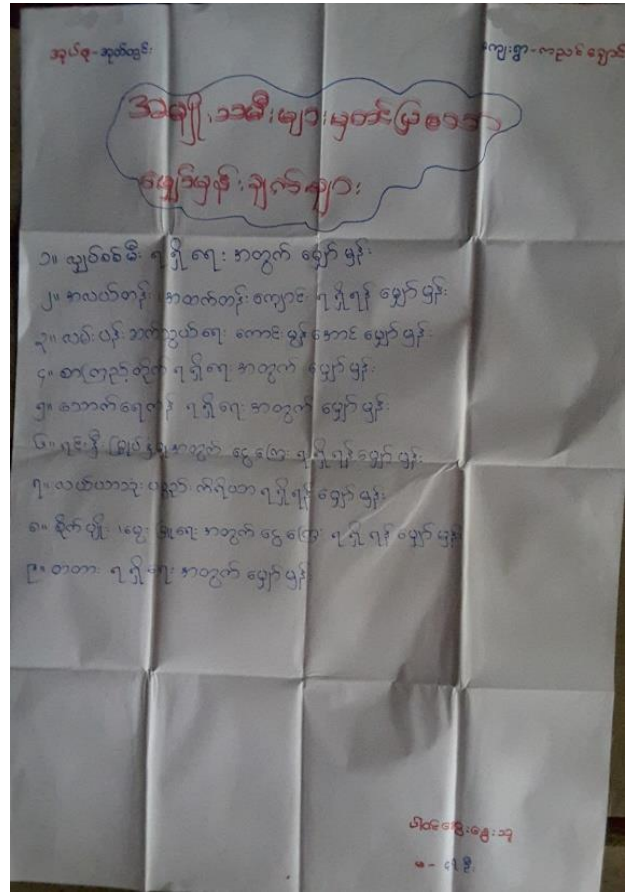 အုပ်စု-အုတ်တွင်း ကျေးရွာ-ကညင်ချောင်
အမျိုးသမီးများမှတင်ပြသော
မျှော်မှန်းချက်များ
၁။ လျှပ်စစ်မီး ရရှိရေး အတွက် မျှော်မှန်း
၂။ အလယ်တန်း၊ အထက်တန်းကျောင်း ရရှိရန် မျှော်မှန်း
၃။ လမ်းပန်းဆက်သွယ်ရေး ကောင်းမွန်အောင် မျှော်မှန်း
၄။ စာကြည့်တိုက် ရရှိရေး အတွက် မျှော်မှန်း
၅။ သောက်ရေကန် ရရှိရေး အတွက် မျှော်မှန်း
၆။ ရင်းနှီးမြှုပ်နှံရေးအတွက် ငွေကြေး ရရှိရန် မျှော်မှန်း
၇။ လယ်ယာသုံး ပစ္စည်းကိရိယာ ရရှိရန် မျှော်မှန်း
၈။ စိုက်ပျိုး၊မွေးမြူရေး အတွက် ငွေကြေး ရရှိရန် မျှော်မှန်း
၉။ တံတား ရရှိရေး အတွက် မျှော်မှန်း
ပါဝင်ဆွေးနွေးသူ
မ - ၄၅ ဦး